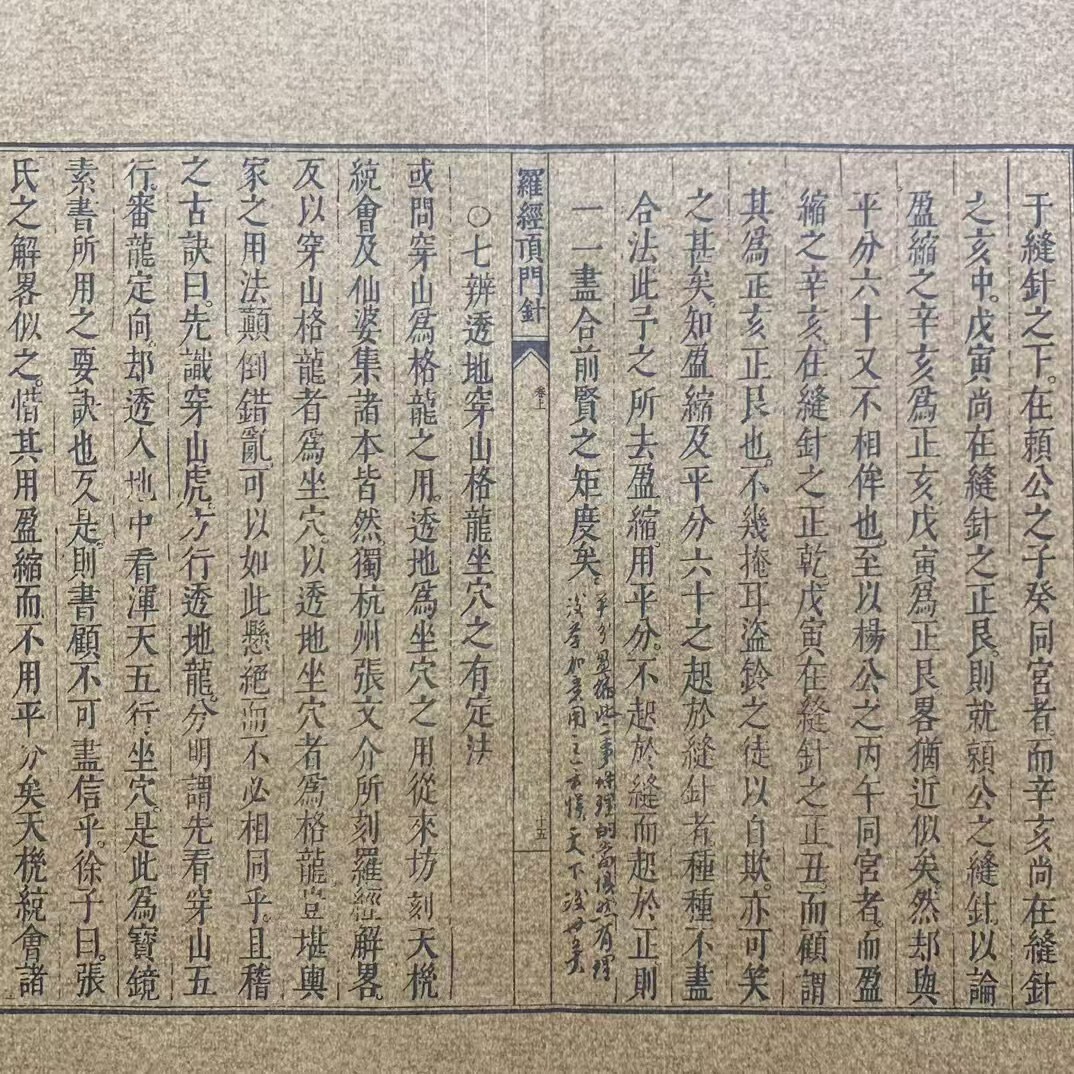 于縫針之下。在賴公之子癸同宮者而辛亥尚在縫針
之亥中。戊寅尚在縫針之正艮。則就賴公之縫針。以論
盈縮之辛亥爲正亥戊寅爲正艮畧猶近似矣。然却與
平分六十又不相侔也。至以楊公之丙午同宮者。而盈
縮之辛亥在縫針之正乾戊寅在縫針之正丑。而顧謂
其爲正亥正艮也。不幾掩耳盜鈴之徒以自欺。亦可笑
之甚矣。知盈縮及平分六十之起於縫針者種種不盡
合法此予之所去盈縮。用平分。不起於縫而起於正則
一一盡合前賢之矩度矣。
平分盈縮此二事
天下
羅經頂門針
卷上
十五
○七辨透地穿山格龍坐穴之有定法
或問穿山爲格龍之用。透地爲坐穴之用從來坊刻天機
統會及仙婆集諸本皆然獨杭州張文介所刻羅經解畧。
反以穿山格龍者爲坐穴。以透地坐穴者爲格龍豈堪輿
家之用法顛倒錯亂。可以如此懸絕而不必相同乎。且稽
之古訣曰。先識穿山虎。方行透地龍。分明謂先看穿山五
行。審龍定向。却透入地中看渾天五行。坐穴。是此爲寶鏡
素書所用之要訣也又是則書顧不可盡信乎。徐子曰。張
氏之解畧似之。惜其用盈縮而不用平分矣天機統會諸